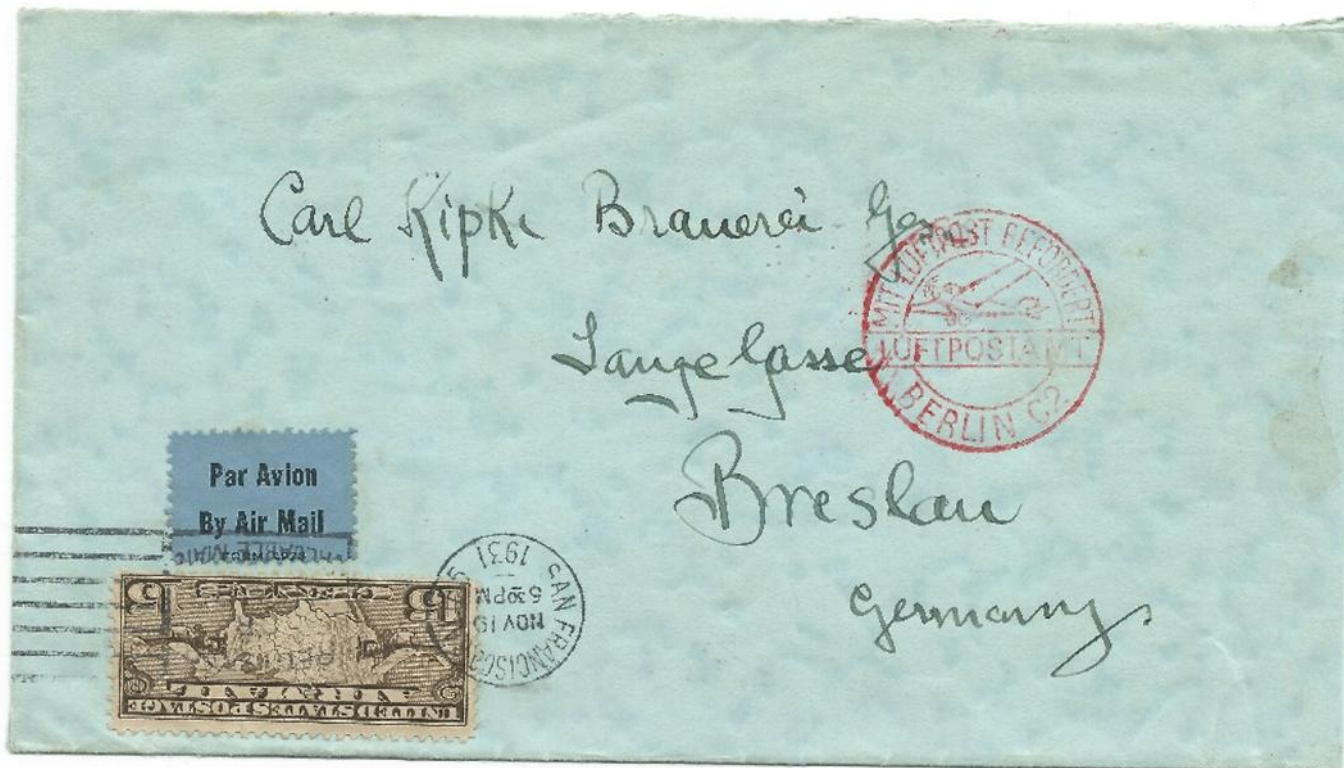 Carl Kipke Brauerei
Lange Gasse
Breslau
Germany
MIT LUFTPOST BEFÖRDERT
LUFTPOSTAMT
BERLIN C2
Par Avion
By Air Mail
SAN FRANCISCO
NOV 19
5 30 PM
1931
UNITED STATES POSTAGE
AIR MAIL
15 15
CENTS